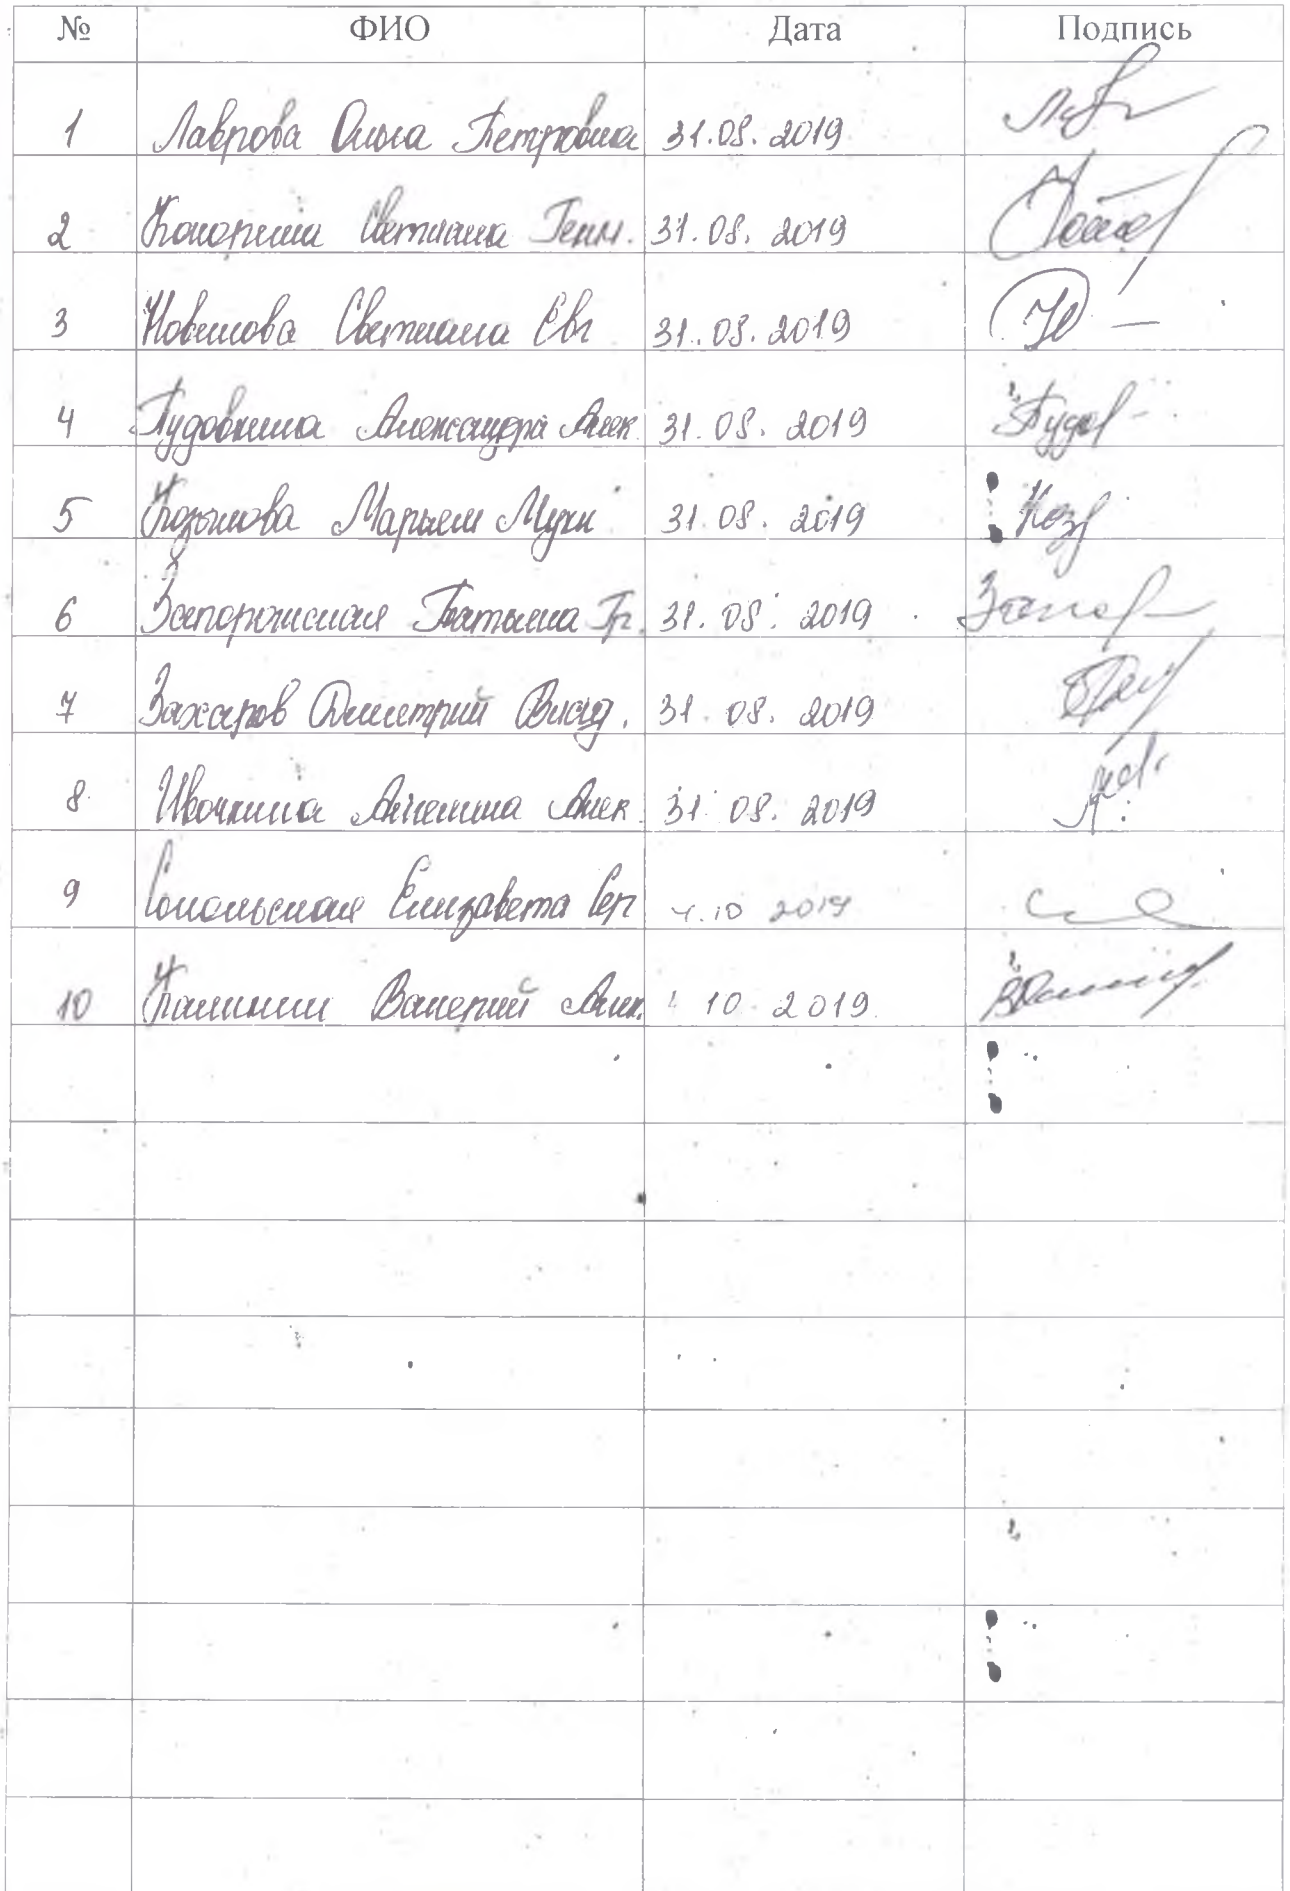 № ФИО Дата Подпись
1 Лаврова Ольга Петровна 31.08.2019
2 Светлана Генн. 31.08.2019
3 Новикова Светлана Евг 31.08.2019
4 Пудовкина Александра Алек 31.08.2019 Пудов
5 Марьем Мухи 31.08.2019 Коз
6 Запорожская Татьяна Гр. 31.08.2019 Запор
7 Захаров Дмитрий Влад. 31.08.2019
8 Ивочкина Ангелина Алек 31.08.2019
9 Сокольская Елизавета Сер 4.10 2019
10 Калинин Валерий Алек. 10.2019